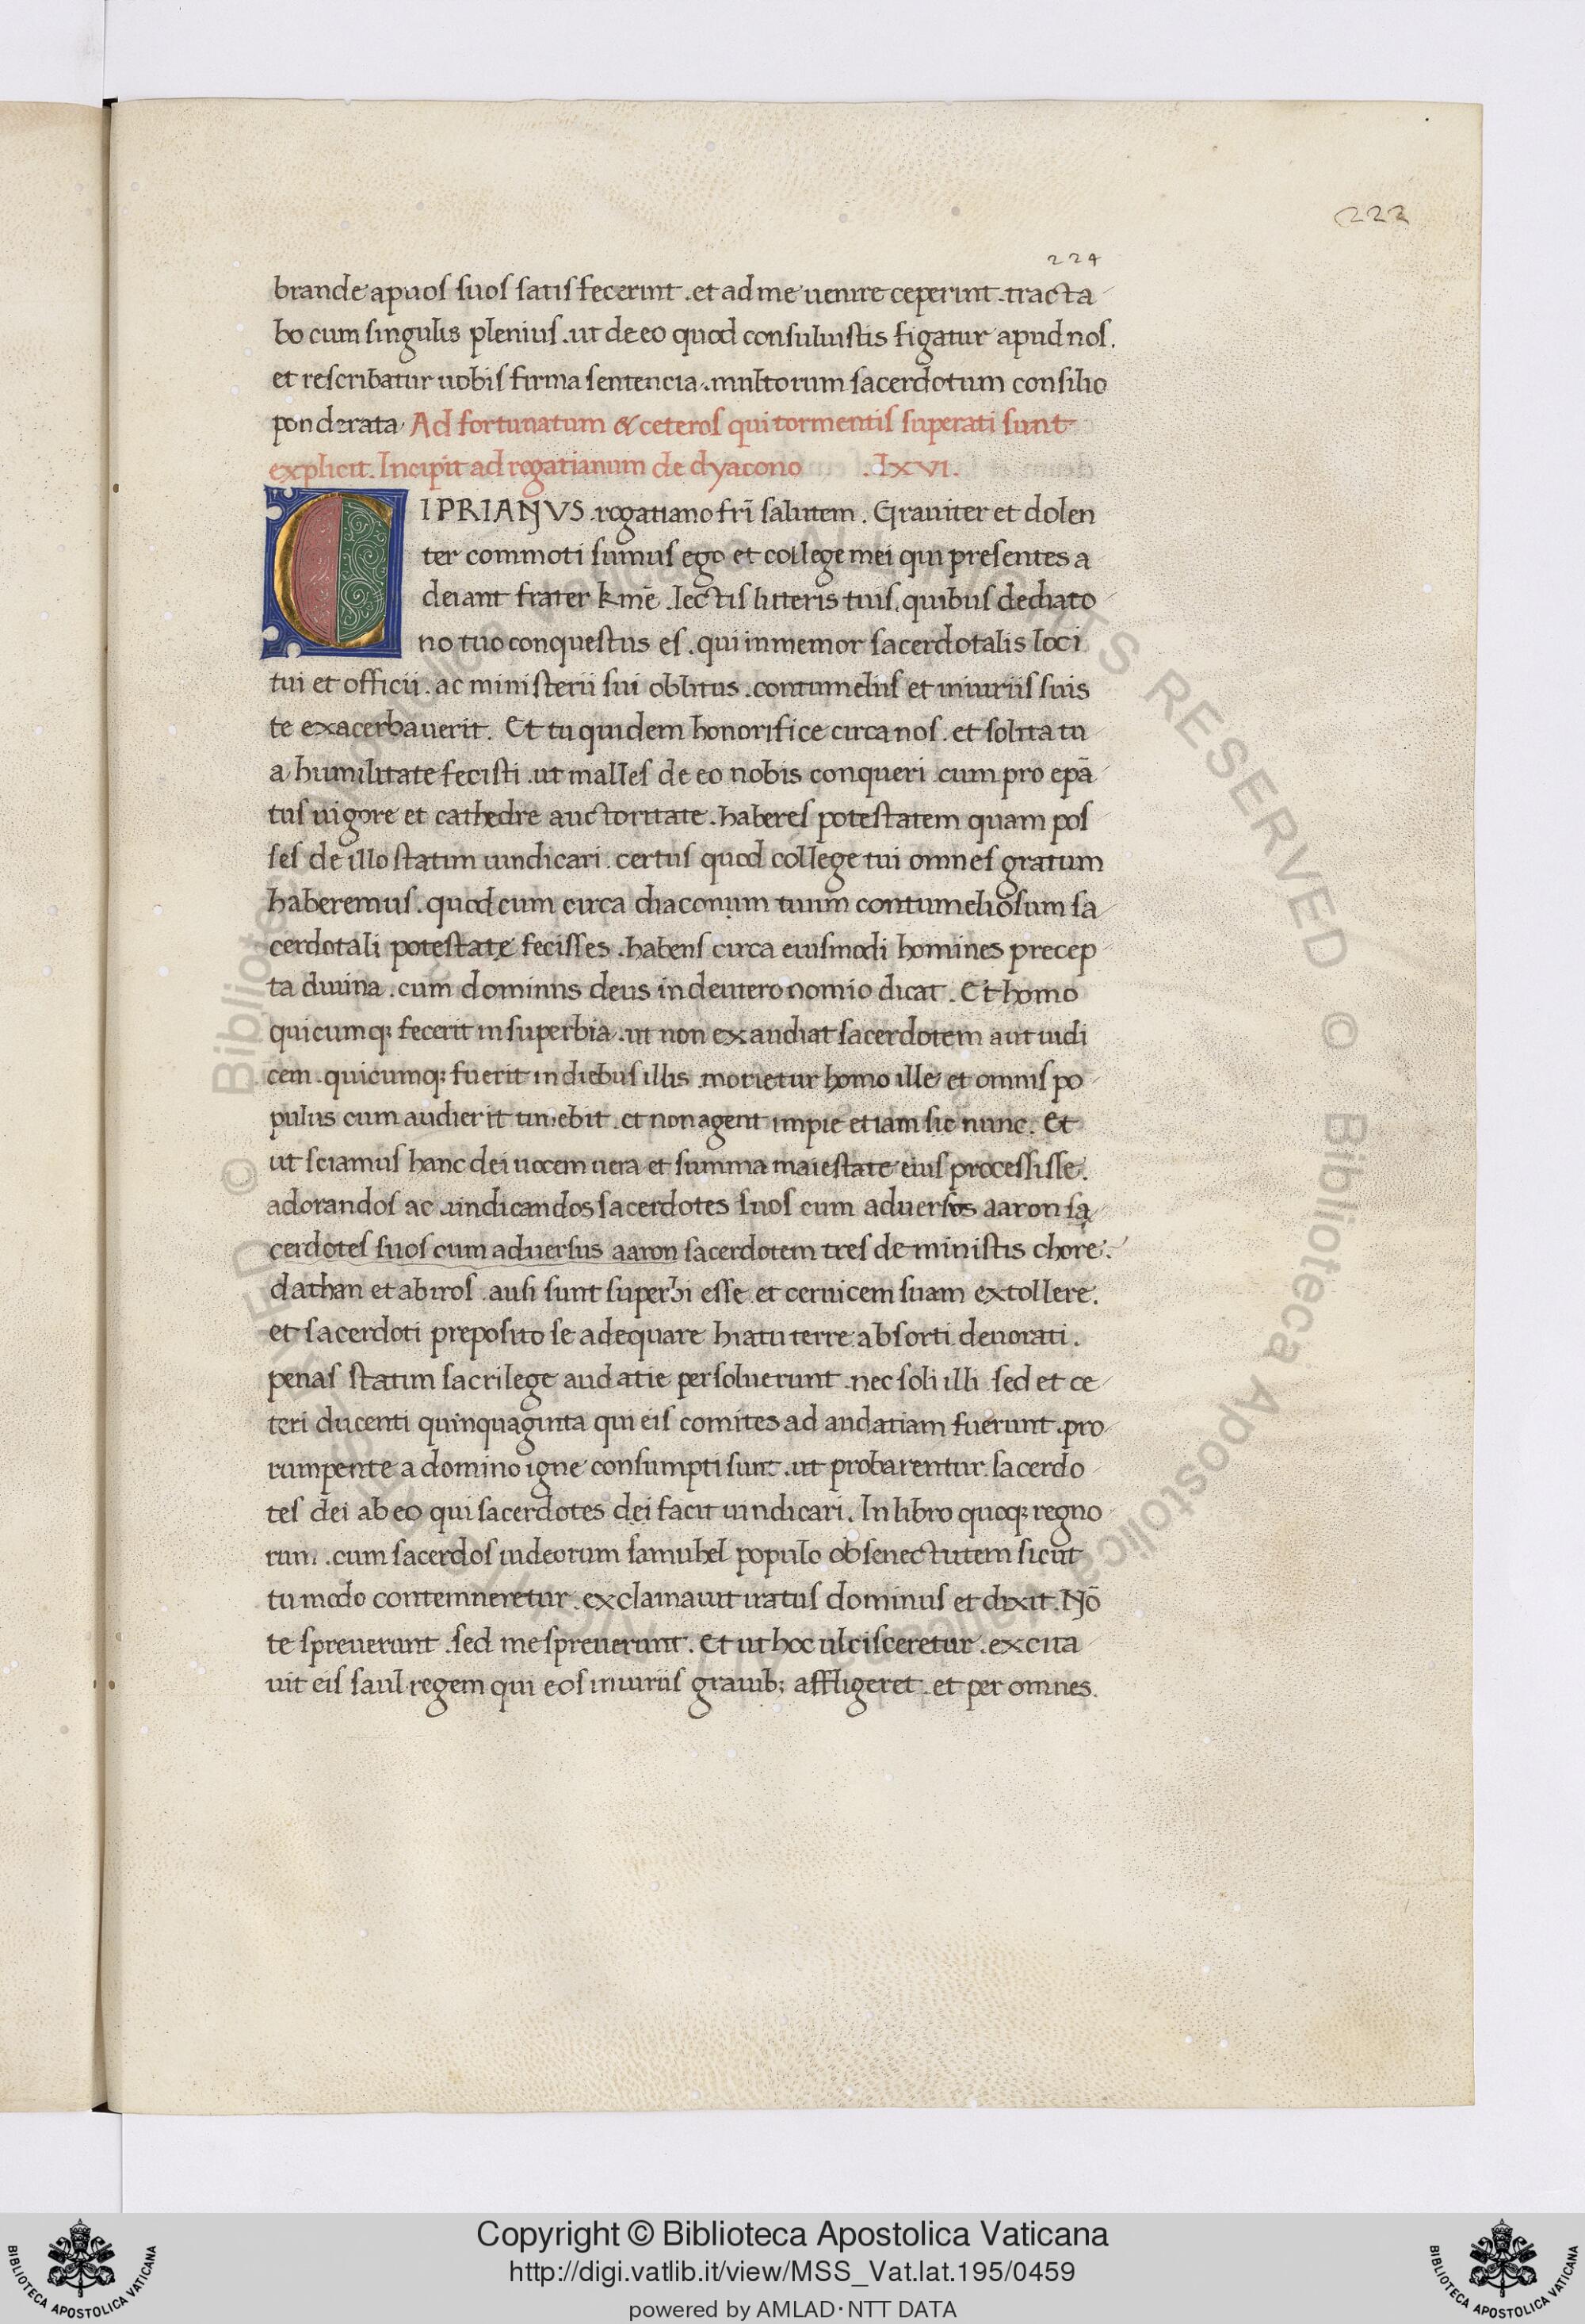 222
224
brande apuos suos satis fecerint . et ad me uenire ceperint . tracta
bo cum singulis plenius . ut de eo quod consuluistis figatur apud nos .
et rescribatur uobis firma sentencia . multorum sacerdotum consilio
ponderata . Ad fortunatum & ceteros qui tormentis superati sunt
explicit . Incipit ad rogatianum de dyacono . lxvi .
CIPRIANVS . rogatiano fr̄i salutem . Grauiter et dolen
ter commoti sumus ego et college mei qui presentes a
deiant frater kme̅ . lectis litteris tuis . quibus de diaco
no tuo conquestus es . qui inmemor sacerdotalis loci
tui et officii . ac ministerii sui oblitus . contumeliis et iniuriis suis
te exacerbauerit . Et tu quidem honorifice circa nos . et solita tu
a humilitate fecisti . ut malles de eo nobis conqueri . cum pro epa̅
tus uigore et cathedre auctoritate . haberes potestatem quam pos
ses de illo statim uindicari . certus quod college tui omnes gratum
haberemus . quodcum circa diaconum tuum contumeliosum sa
cerdotali potestate fecisses . habens circa eiusmodi homines precep
ta diuina . cum dominus deus in deuteronomio dicat . Et homo
quicumq; fecerit in superbia . ut non exaudiat sacerdotem aut iudi
cem . quicumq; fuerit in diebus illis . morietur homo ille et omnis po
pulus cum audierit timebit . et non agent impie etiam sic nunc . Et
ut sciamus hanc dei uocem uera et summa maiestate eius processisse .
adorandos ac uindicandos sacerdotes suos cum aduersus aaron sa
cerdotes suos cum aduersus aaron sacerdotem tres de ministis chore .
dathan et abiros . ausi sunt superbi esse et ceruicem suam extollere .
et sacerdoti preposito se adequare hiatu terre absorti deuorati .
penas statim sacrilege audatie persoluerunt . nec soli illi . sed et ce
teri ducenti quinquaginta qui eis comites ad audatiam fuerunt . pro
rumpente a domino igne consumpti sunt . ut probarentur sacerdo
tes dei ab eo qui sacerdotes dei facit uindicari . In libro quoq; regno
rum . cum sacerdos iudeorum samuhel populo ob senectutem sicut
tu modo contemneretur . exclamauit iratus dominus et dixit . No̅
te spreuerunt . sed me spreuerunt . Et ut hoc ulcisceretur . excita
uit eis saul regem qui eos iniuriis grauib; affligeret . et per omnes .
© Biblioteca Apostolica Vaticana ALL RIGHTS RESERVED © Biblioteca Apostolica
Copyright © Biblioteca Apostolica Vaticana
http://digi.vatlib.it/view/MSS_Vat.lat.195/0459
powered by AMLAD·NTT DATA
BIBLIOTECA APOSTOLICA VATICANA
BIBLIOTECA APOSTOLICA VATICANA